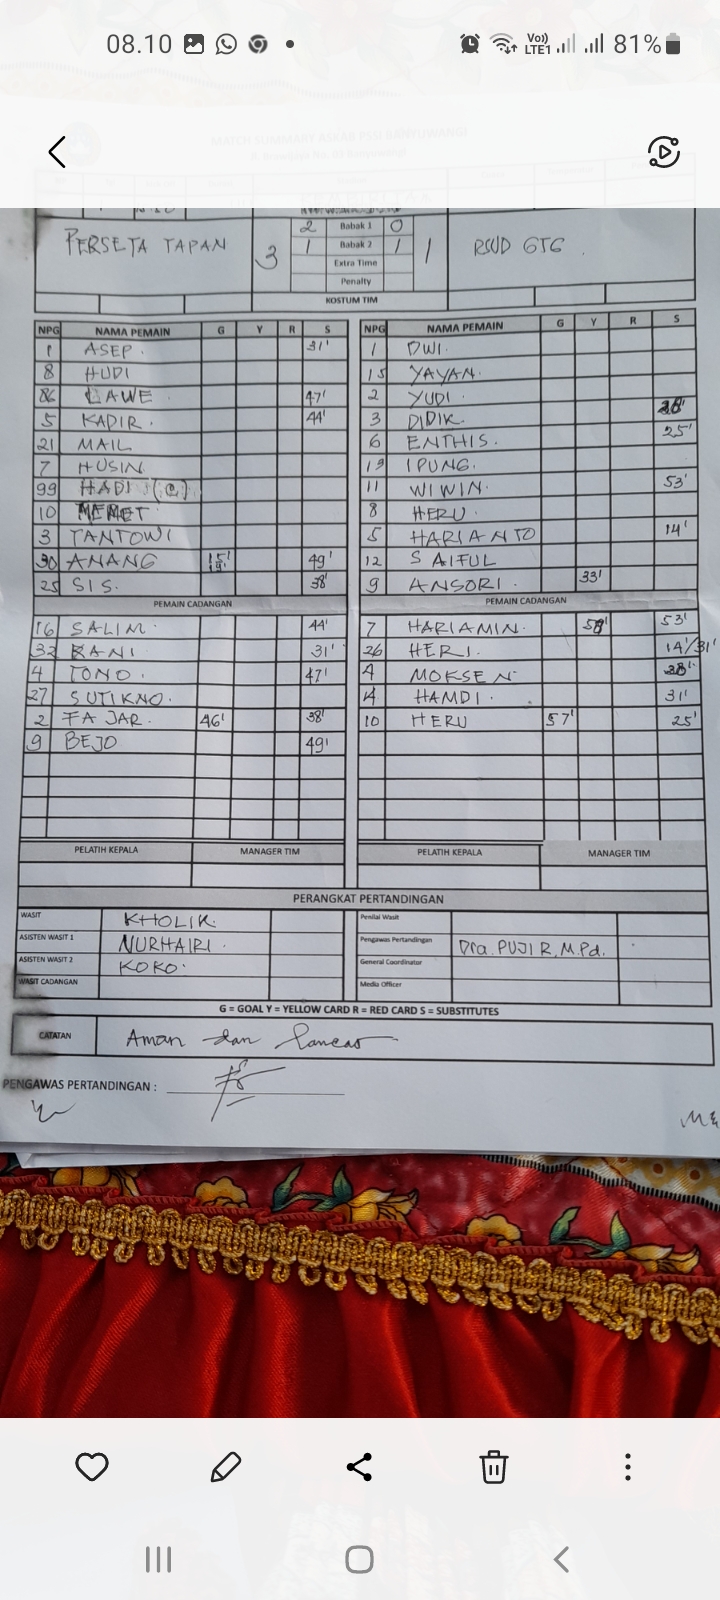 08.10 Vo)) LTE1 81%
MATCH SUMMARY ASKAB PSSI BANYUWANGI
PERSETA TAPAN 3 2 Babak 1 0 1 RSUD GTG
1 Babak 2 1
Extra Time
Penalty
KOSTUM TIM
NPG NAMA PEMAIN G Y R S NPG NAMA PEMAIN G Y R S
1 ASEP. 31' 1 DWI.
8 HUDI 15 YAYAN.
86 CAWE 47' 2 YUDI.
5 KADIR. 44' 3 DIDIK.
21 MAIL 6 ENTHIS. 25'
7 HUSIN 19 IPUNG.
99 HADI (C) 11 WIWIN. 53'
10 MEMET 8 HERU.
3 TANTOWI 5 HARIANTO 14'
30 ANANG 15' 19' 49' 12 SAIFUL
25 SIS. 38' 9 ANSORI. 33'
PEMAIN CADANGAN PEMAIN CADANGAN
16 SALIM. 44' 7 HARIAMIN. 53'
32 RANI 31' 26 HERI. 14'/31'
4 TONO. 47' 4 MOKSEN
27 SUTIKNO. 14 HAMDI. 31'
2 FAJAR. 46' 38' 10 HERU 57' 25'
9 BEJO 49'
PELATIH KEPALA MANAGER TIM PELATIH KEPALA MANAGER TIM
PERANGKAT PERTANDINGAN
WASIT KHOLIK. Penilai Wasit
ASISTEN WASIT 1 NURHAIRI. Pengawas Pertandingan Dra. PUJI R, M.Pd.
ASISTEN WASIT 2 KOKO. General Coordinator
WASIT CADANGAN Media Officer
G = GOAL Y = YELLOW CARD R = RED CARD S = SUBSTITUTES
CATATAN Aman dan lancar
PENGAWAS PERTANDINGAN :